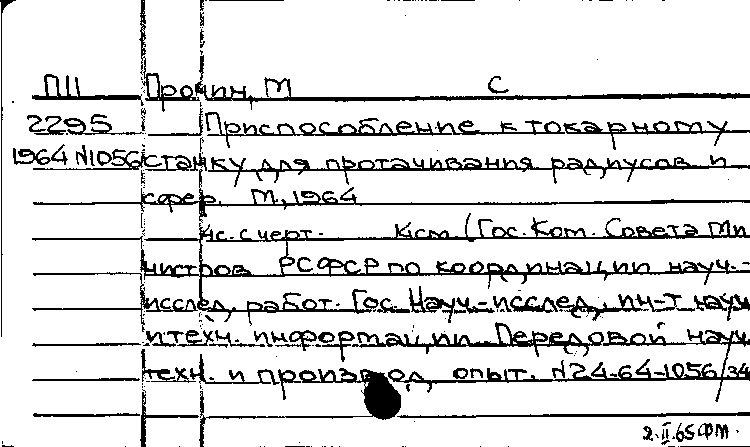 П11 Прочин, М С
2295 Приспособление к токарному
1964 N1056 станку для протачивания радиусов и
сфер. М., 1964
4с. с черт. (Гос. Ком. Совета Ми
нистров РСФСР по координации науч.-
исслед. работ. Гос. Науч.-исслед. ин-т науч
и техн. информации. Передовой науч
техн. и производ. опыт. N24-64-1056/34
2.II.65 ФМ.